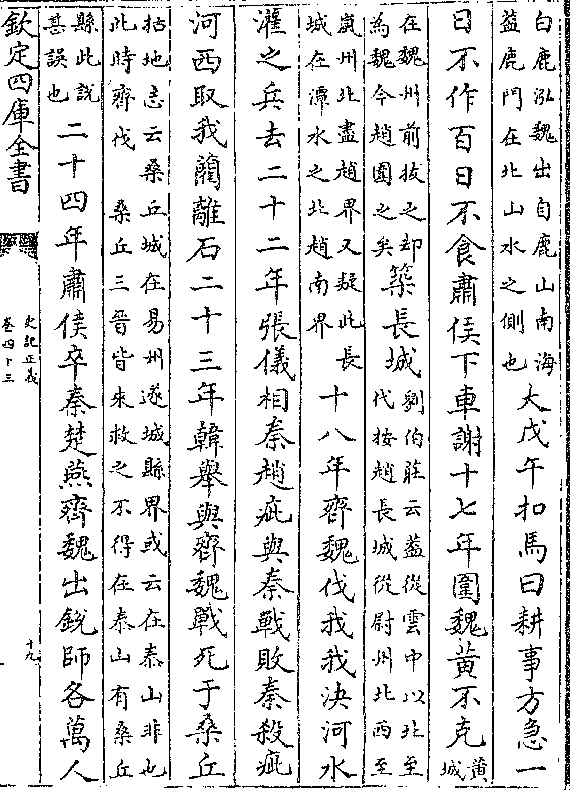 白鹿泓魏出自鹿山南海
蓋鹿門在北山水之側也
大戊午扣馬曰耕事方急一
日不作百日不食肅侯下車謝十七年圍魏黄不克
黄
城
在魏州前拔之却
為魏今趙圍之矣
築長城
劉伯莊云蓋從雲中以北至
代按趙長城從尉州北西至
嵐州北盡趙界又疑此長
城在潭水之北趙南界
十八年齊魏伐我我決河水
灌之兵去二十二年張儀相秦趙疵與秦戰敗秦殺疵
河西取我藺離石二十三年韓舉與齊魏戰死于桑丘
括地志云桑丘城在易州遂城縣界或云在泰山非也
此時齊伐 桑丘三晉皆來救之不得在泰山有桑丘
縣此說
甚誤也
二十四年肅侯卒秦楚燕齊魏出銳師各萬人
欽定四庫全書
史記正義
卷四十三
十九